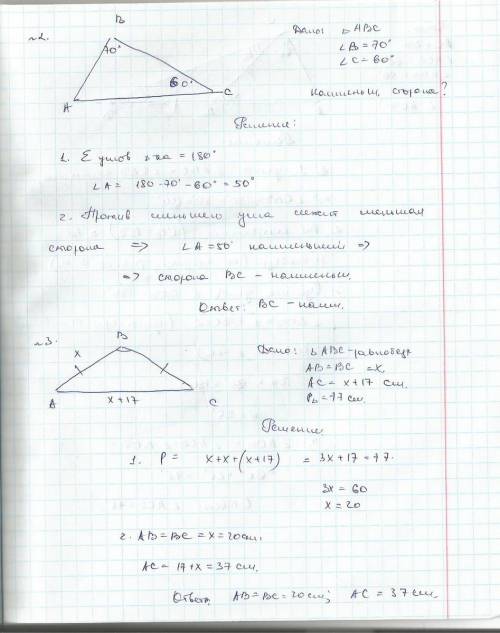 №2.
B
70°
60°
A
C
Дано: △ABC
∠B = 70°
∠C = 60°
наименьш. сторона?
Решение:
1. Σ углов △ка = 180°
∠A = 180 - 70° - 60° = 50°
2. Против меньшего угла лежит меньшая
сторона => ∠A = 50° наименьший =>
=> сторона BC - наименьш.
Ответ: BC - наим.
№3.
B
x
A
C
x + 17
Дано: △ABC - равнобедр
AB = BC = x.
AC = x + 17 см.
P△ = 77 см.
Решение
1. P = x + x + (x + 17) = 3x + 17 = 77.
3x = 60
x = 20
2. AB = BC = x = 20 см.
AC = 17 + x = 37 см.
Ответ: AB = BC = 20 см; AC = 37 см.